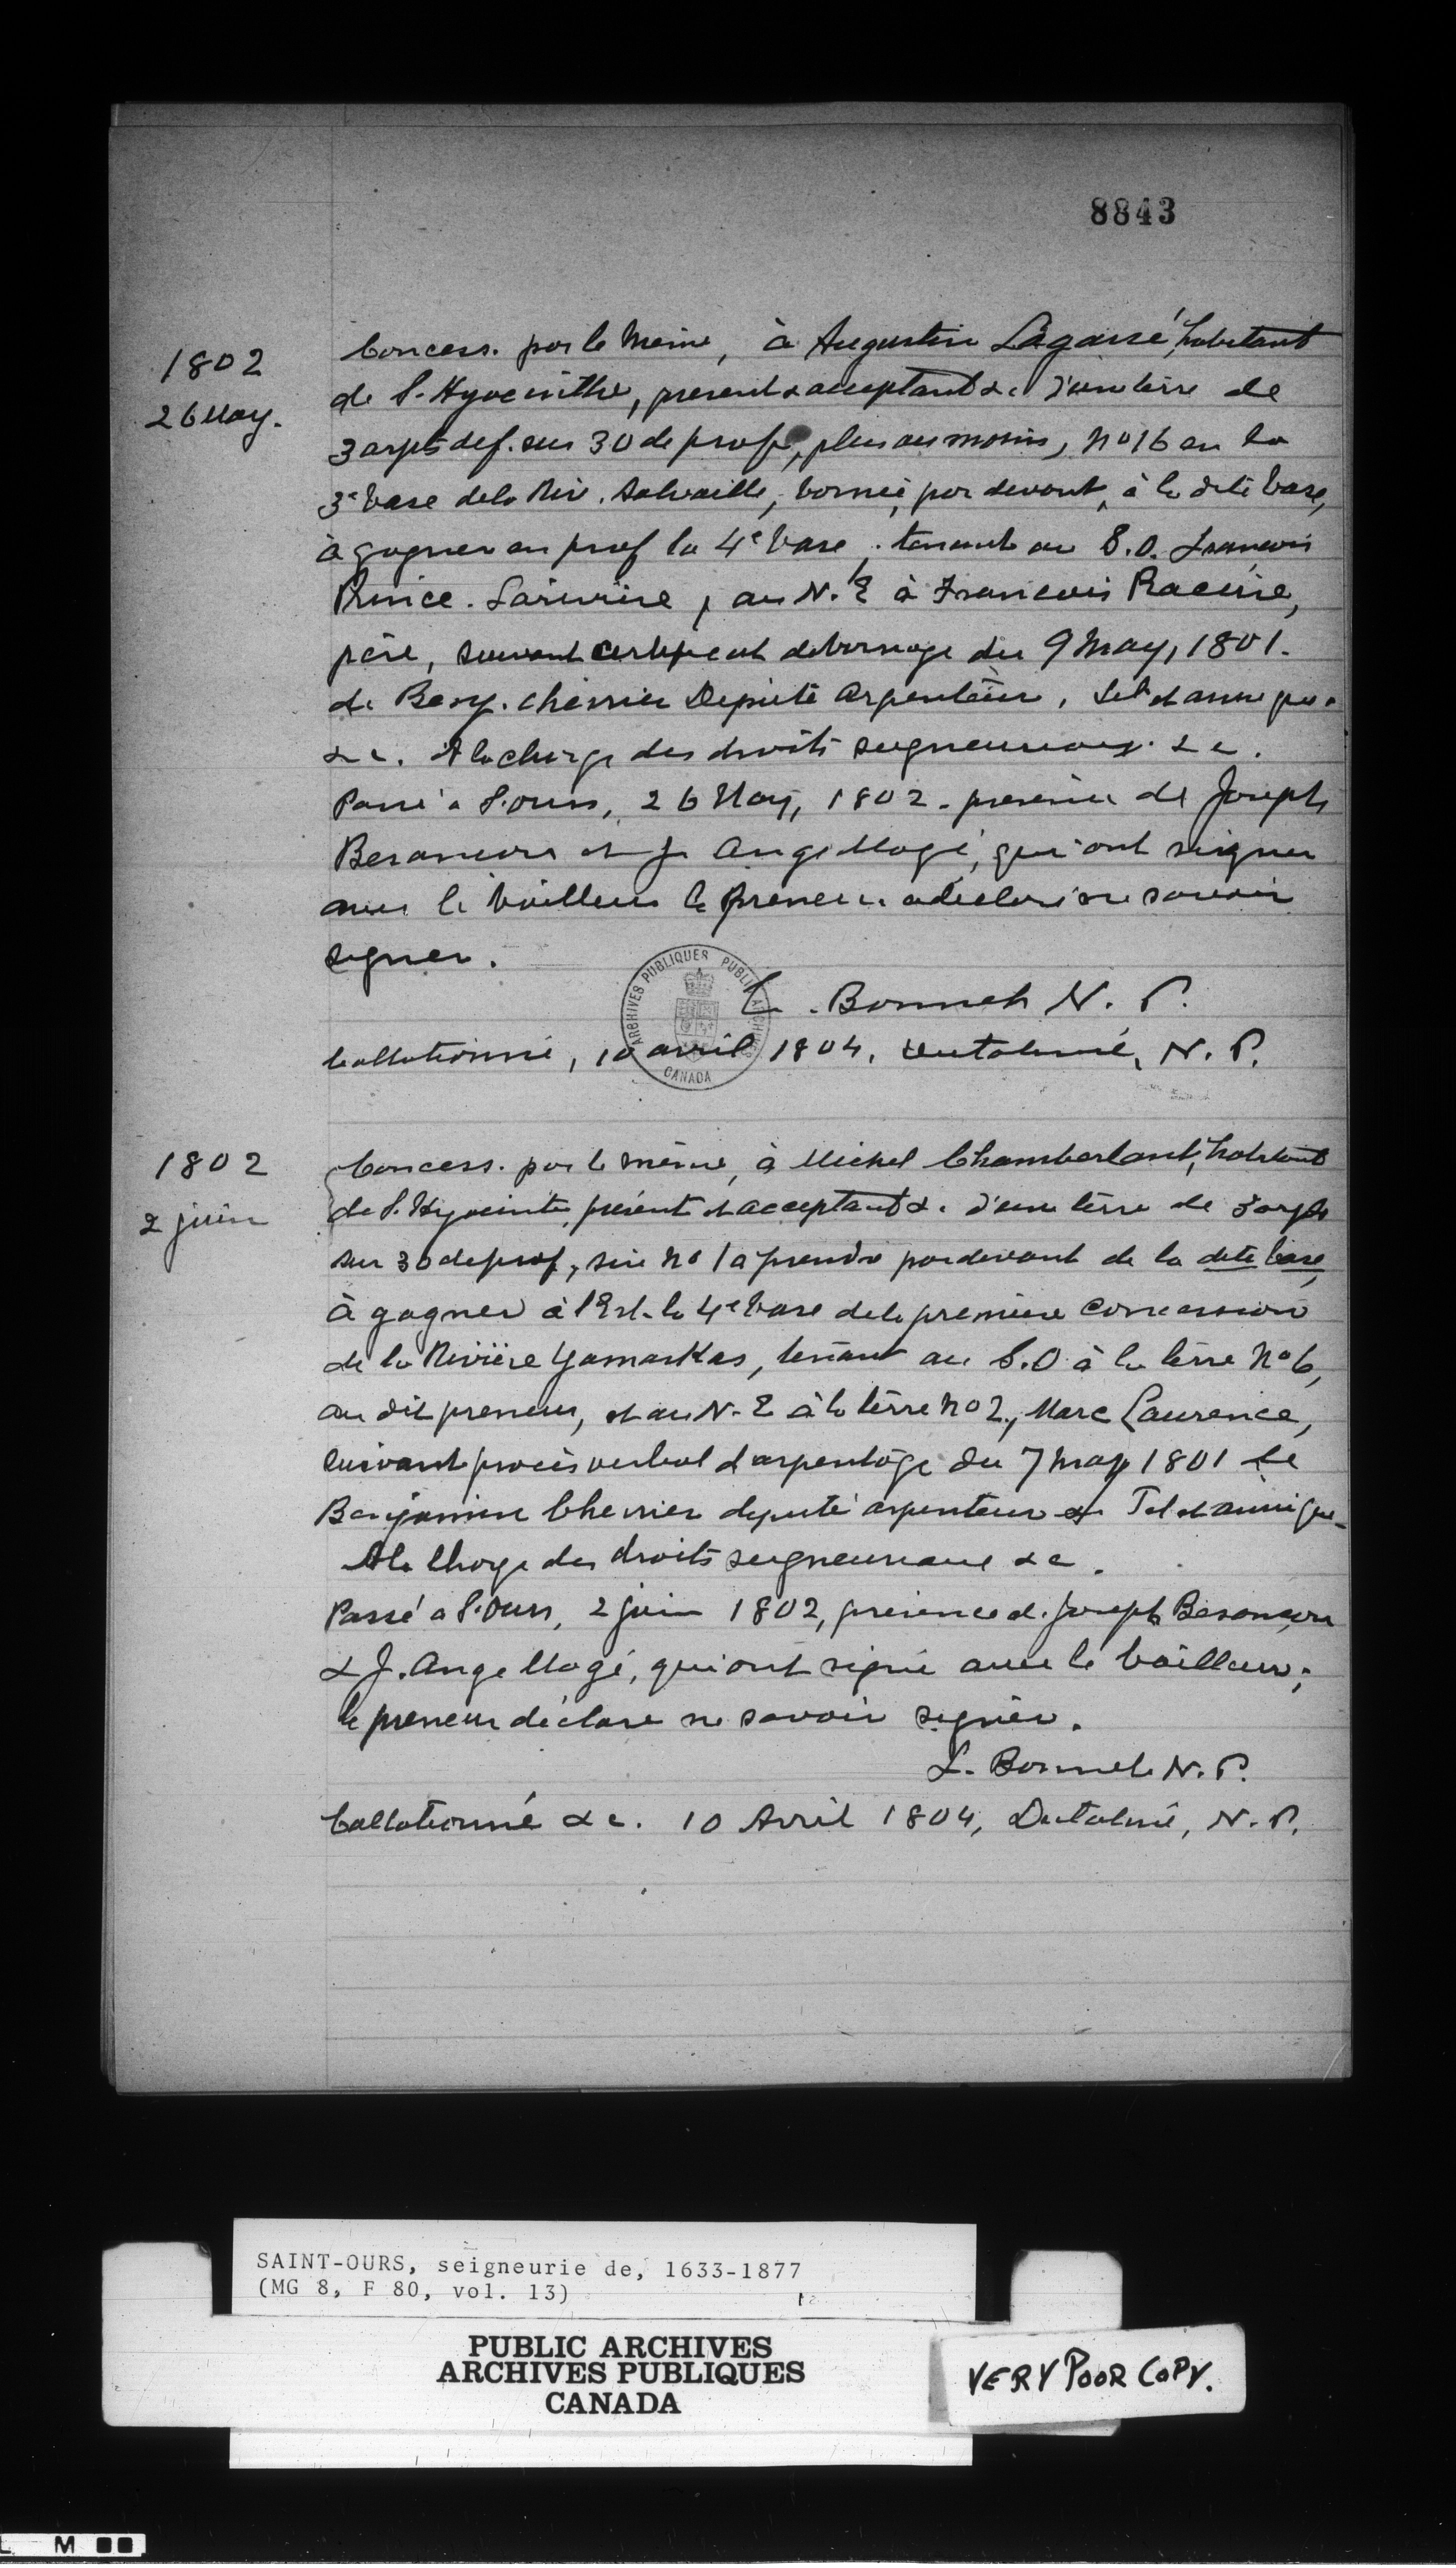 8843
1802
26 May.
Concess. par le Même, à Augustin Lagassé, habitant
de S. Hyacinthe, present & acceptant &c d'une terre de
3 arpts de f. sur 30 de prof, plus ou moins, no 16 en la
3e base de la Riv. Salvaille, bornée, par devant, à la dite base,
à gagner en prof la 4e base, tenant au S.O. François
Prince. Larivière, au N.E à François Racine,
père, suivant certificat de bornage du 9 May, 1801.
de Benj. cherrier Deputé Arpenteur, tel et ainsi que
&c. A la charge des droits seigneuriaux &c.
Passé à S. ours, 26 May, 1802. présence de Joseph
Besancon et J. Ange Magé, qui ont signer
avec le bailleur le preneur a déclaré ne savoir
signer.
L. Bonnet N. P.
Collationné, 10 avril 1804, Dutalmé, N. P.
ARCHIVES PUBLIQUES PUBLIC ARCHIVES
CANADA
1802
2 juin
Concess. par le même, à Michel Chamberlant, habitant
de S. Hyacinte, présent et acceptant &. d'une terre de 3 arpts
sur 30 de prof, sise no 1 a prendre par devant de la dite base,
à gagner à l'Est la 4e base de la première Concession
de la Rivière Yamaskas, tenant au S.O à la terre no 6,
au dit preneur, et au N-E à la terre no 2, Marc Laurence,
suivant procès verbal d'arpentage du 7 may 1801 de
Benjamin Cherrier deputé arpenteur & Tel et ainsi que-
A la Charge des droits seigneuriaux &c.
Passé a S. Ours, 2 juin 1802, présence de Joseph Besancon
& J. Ange Magé, qui ont signé avec le bailleur;
le preneur déclare ne savoir signer.
L. Bonnet N. P.
Collationné &c. 10 Avril 1804, Dutalmé, N. P.
SAINT-OURS, seigneurie de, 1633-1877
(MG 8, F 80, vol. 13)
PUBLIC ARCHIVES
ARCHIVES PUBLIQUES
CANADA
VERY POOR COPY.
L M